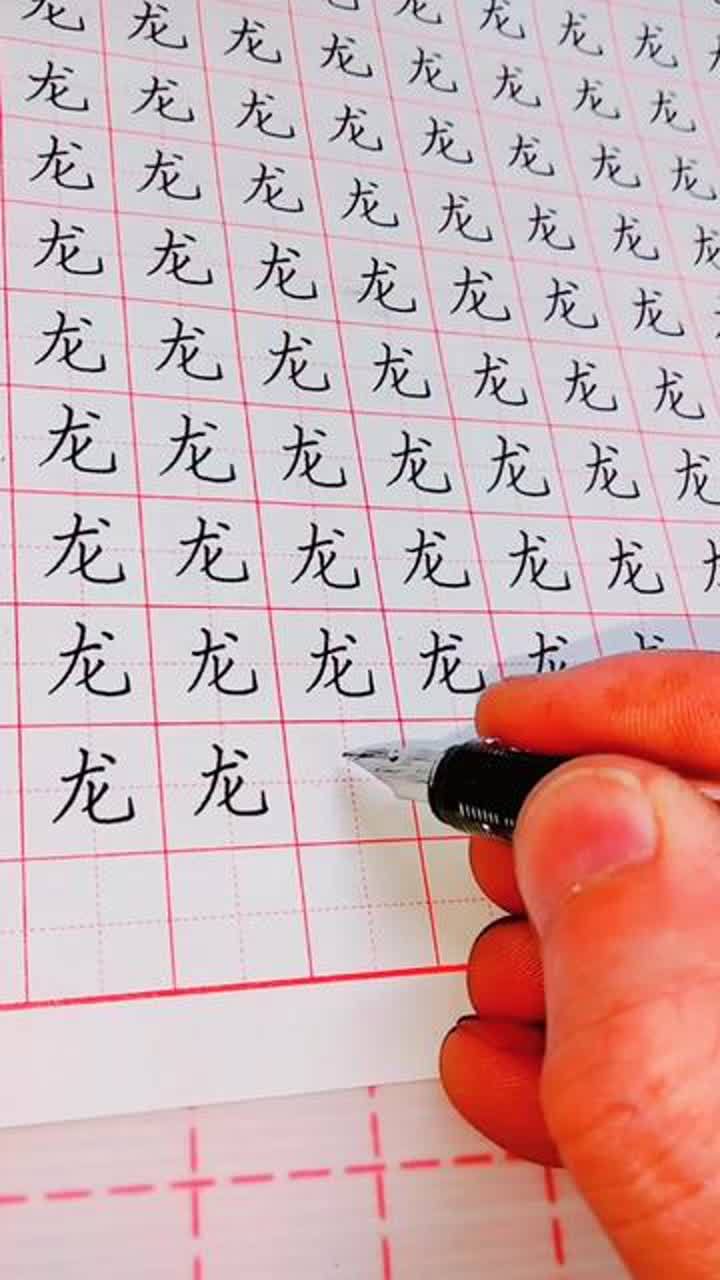 龙龙龙龙
龙龙龙龙龙龙龙龙
龙龙龙龙龙龙龙龙
龙龙龙龙龙龙龙龙
龙龙龙龙龙龙龙
龙龙龙龙龙龙龙
龙龙龙龙龙龙龙
龙龙龙龙龙龙
龙龙龙龙龙
龙龙